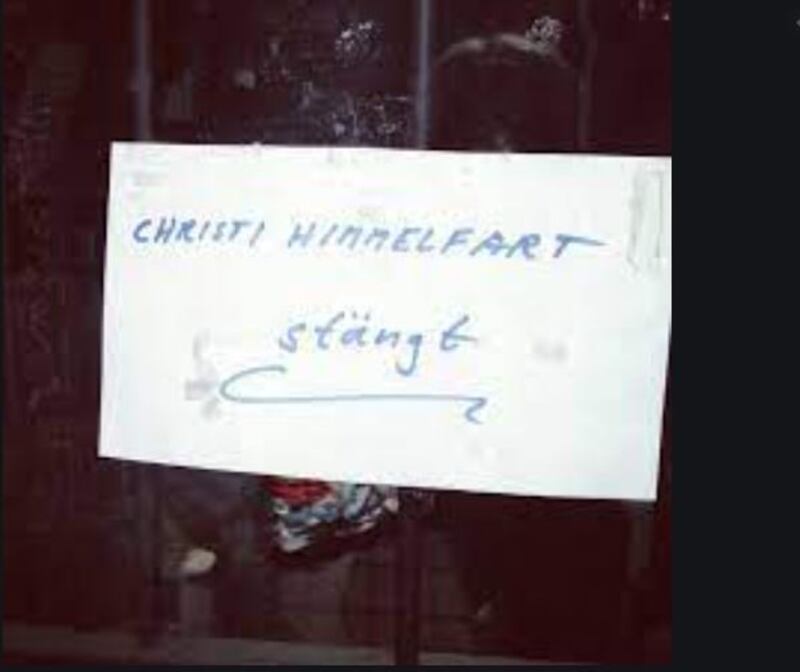 CHRISTI HIMMELFART
stängt